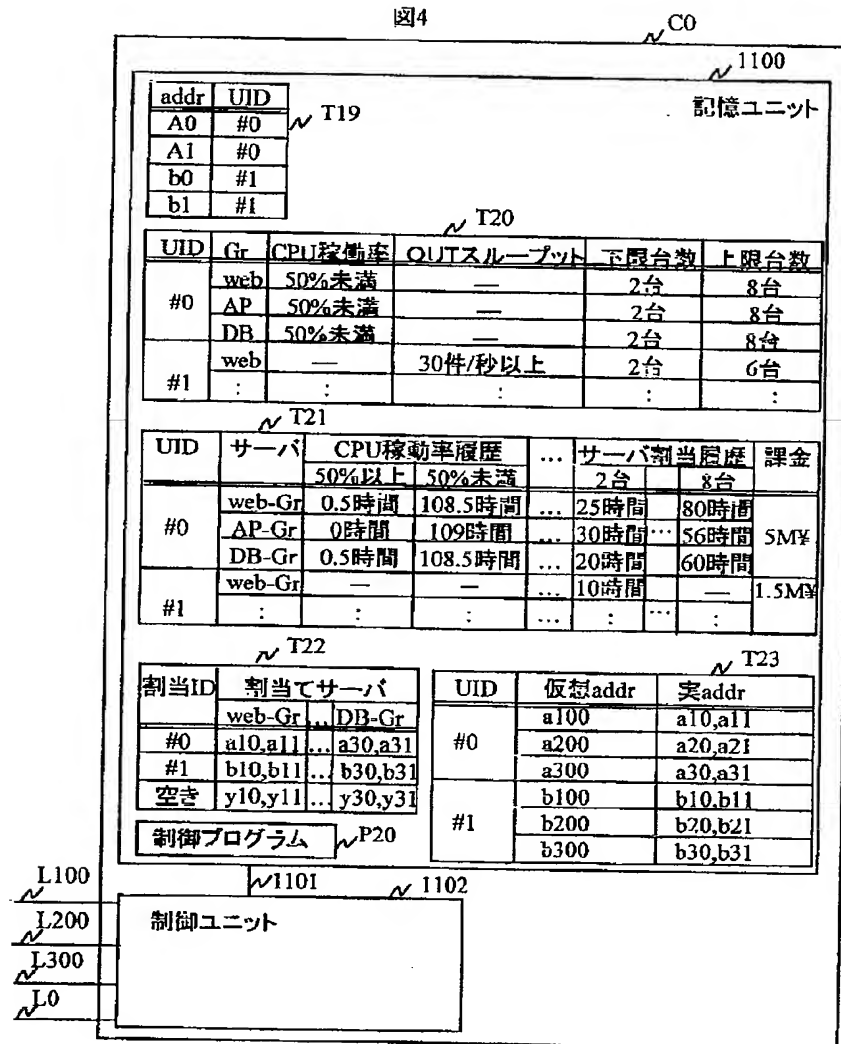 図4
C0
1100
記憶ユニット
addr UID
A0 #0
A1 #0
b0 #1
b1 #1
T19
T20
UID Gr CPU稼働率 OUTスループット 下限台数 上限台数
#0
web 50%未満 — 2台 8台
AP 50%未満 — 2台 8台
DB 50%未満 — 2台 8台
#1
web — 30件/秒以上 2台 6台
: : : : :
T21
UID サーバ CPU稼動率履歴 … サーバ割当履歴 課金
50%以上 50%未満 2台 8台
#0
web-Gr 0.5時間 108.5時間 … 25時間 80時間
AP-Gr 0時間 109時間 … 30時間 … 56時間 5M¥
DB-Gr 0.5時間 108.5時間 … 20時間 60時間
#1
web-Gr — — 10時間 — 1.5M¥
: : : … : … :
T22
割当ID 割当てサーバ
web-Gr … DB-Gr
#0 a10,a11 … a30,a31
#1 b10,b11 … b30,b31
空き y10,y11 … y30,y31
制御プログラム P20
T23
UID 仮想addr 実addr
#0
a100 a10,a11
a200 a20,a21
a300 a30,a31
#1
b100 b10,b11
b200 b20,b21
b300 b30,b31
1101
1102
制御ユニット
L100
L200
L300
L0